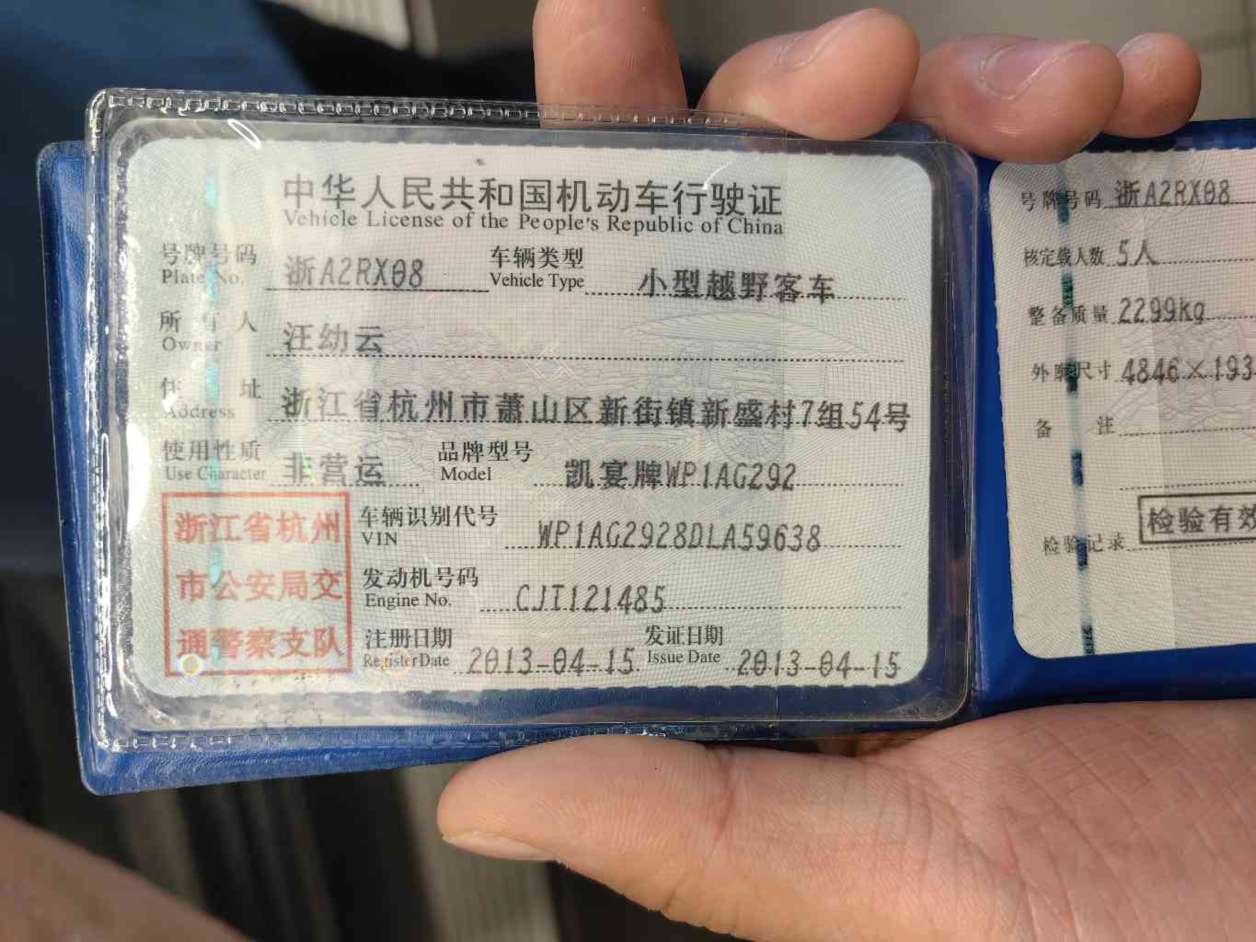 中华人民共和国机动车行驶证
Vehicle License of the People's Republic of China
号牌号码 浙A2RX08 车辆类型 小型越野客车
Plate No. Vehicle Type
所有人 汪幼云
Owner
住址 浙江省杭州市萧山区新街镇新盛村7组54号
Address
使用性质 非营运 品牌型号 凯宴牌WP1AG292
Use Character Model
浙江省杭州
市公安局交
通警察支队
车辆识别代号 WP1AG2928DLA59638
VIN
发动机号码 CJT121485
Engine No.
注册日期 2013-04-15 发证日期 2013-04-15
Register Date Issue Date
号牌号码 浙A2RX08
核定载人数 5人
整备质量 2299kg
外廓尺寸 4846×193
备注
检验记录 检验有效